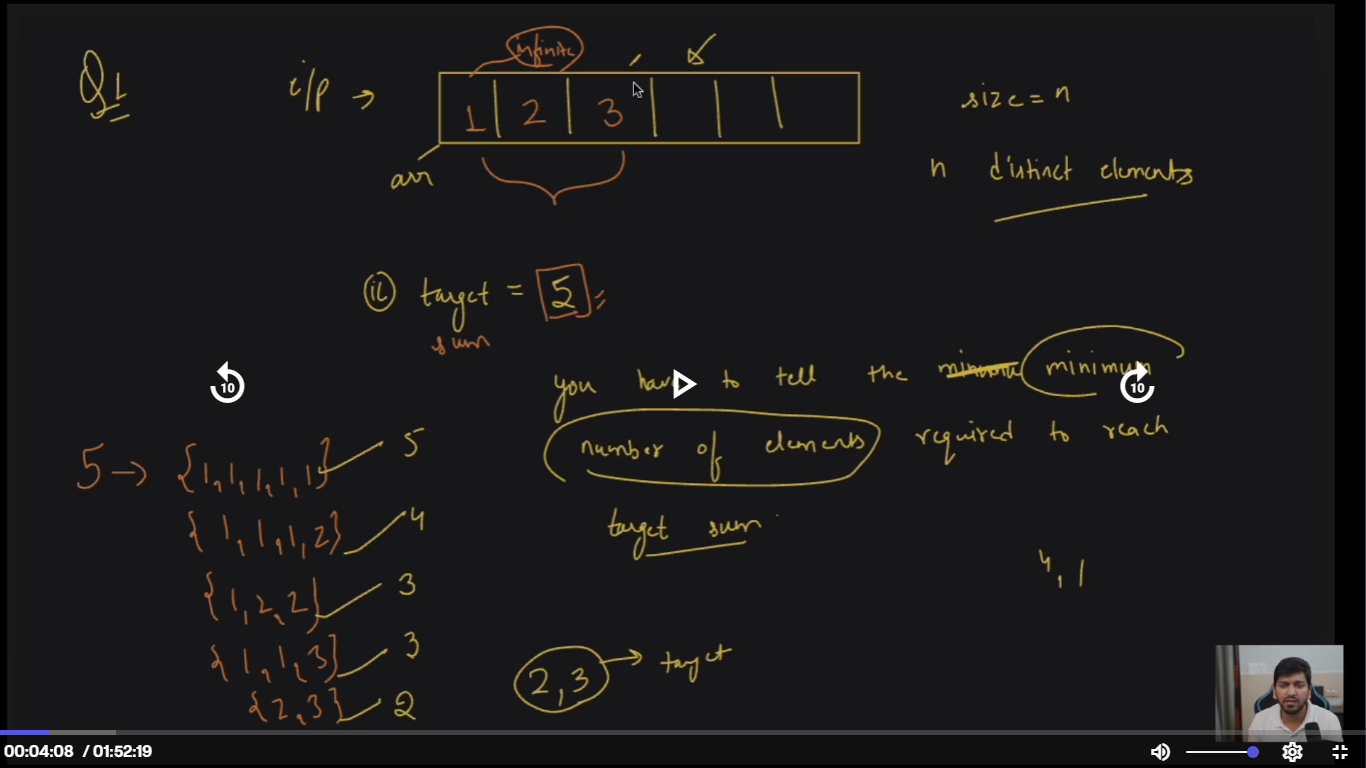 Q1
i/p →
infinite
1 2 3
arr
size = n
n distinct elements
(ii) target = 5
sum
you have to tell the minimum minimum
number of elements required to reach
target sum
5 → {1,1,1,1,1} 5
{1,1,1,2} 4
{1,2,2} 3
{1,1,3} 3
{2,3} 2
2,3 → target
4,1
10
10
00:04:08 / 01:52:19